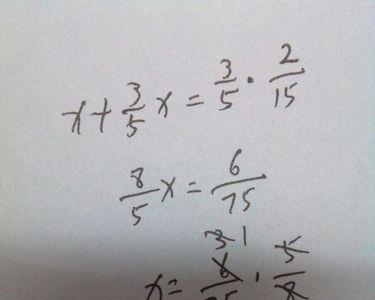 x + 3/5 x = 3/5 · 2/15
8/5 x = 6/75
3 1
x = 6/ · 5/